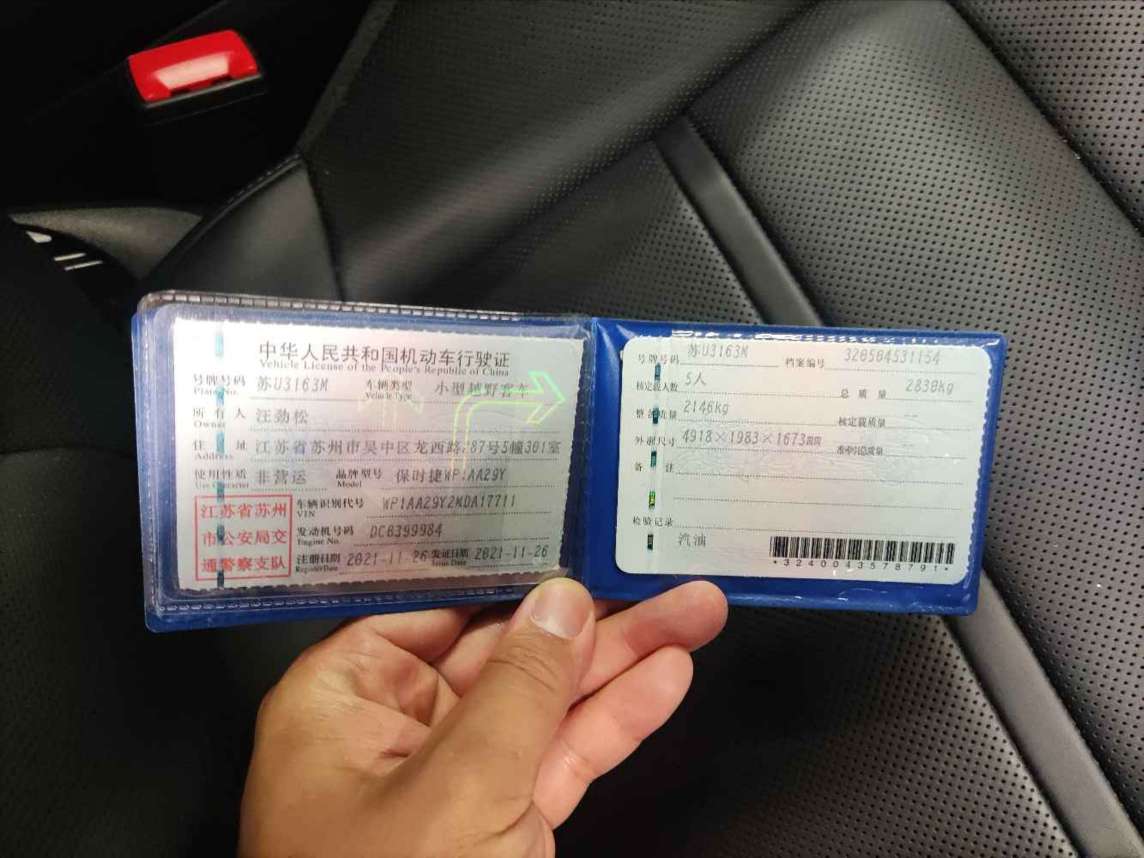 中华人民共和国机动车行驶证
Vehicle License of the People's Republic of China
号牌号码 苏U3163M 车辆类型 小型越野客车
Plate No. Vehicle Type
所有人 汪劲松
Owner
住址 江苏省苏州市吴中区龙西路287号5幢301室
Address
使用性质 非营运 品牌型号 保时捷WP1AA29Y
Use Character Model
江苏省苏州
市公安局交
通警察支队
车辆识别代号 WP1AA29Y2MDA17711
VIN
发动机号码 DCB399984
Engine No.
注册日期 2021-11-26 发证日期 2021-11-26
Register Date Issue Date
号牌号码 苏U3163M 档案编号 320504531154
核定载人数 5人 总质量 2830kg
整备质量 2146kg 核定载质量 --
外廓尺寸 4918×1983×1673mm 准牵引总质量 --
备注
检验记录
汽油
*3240043578791*